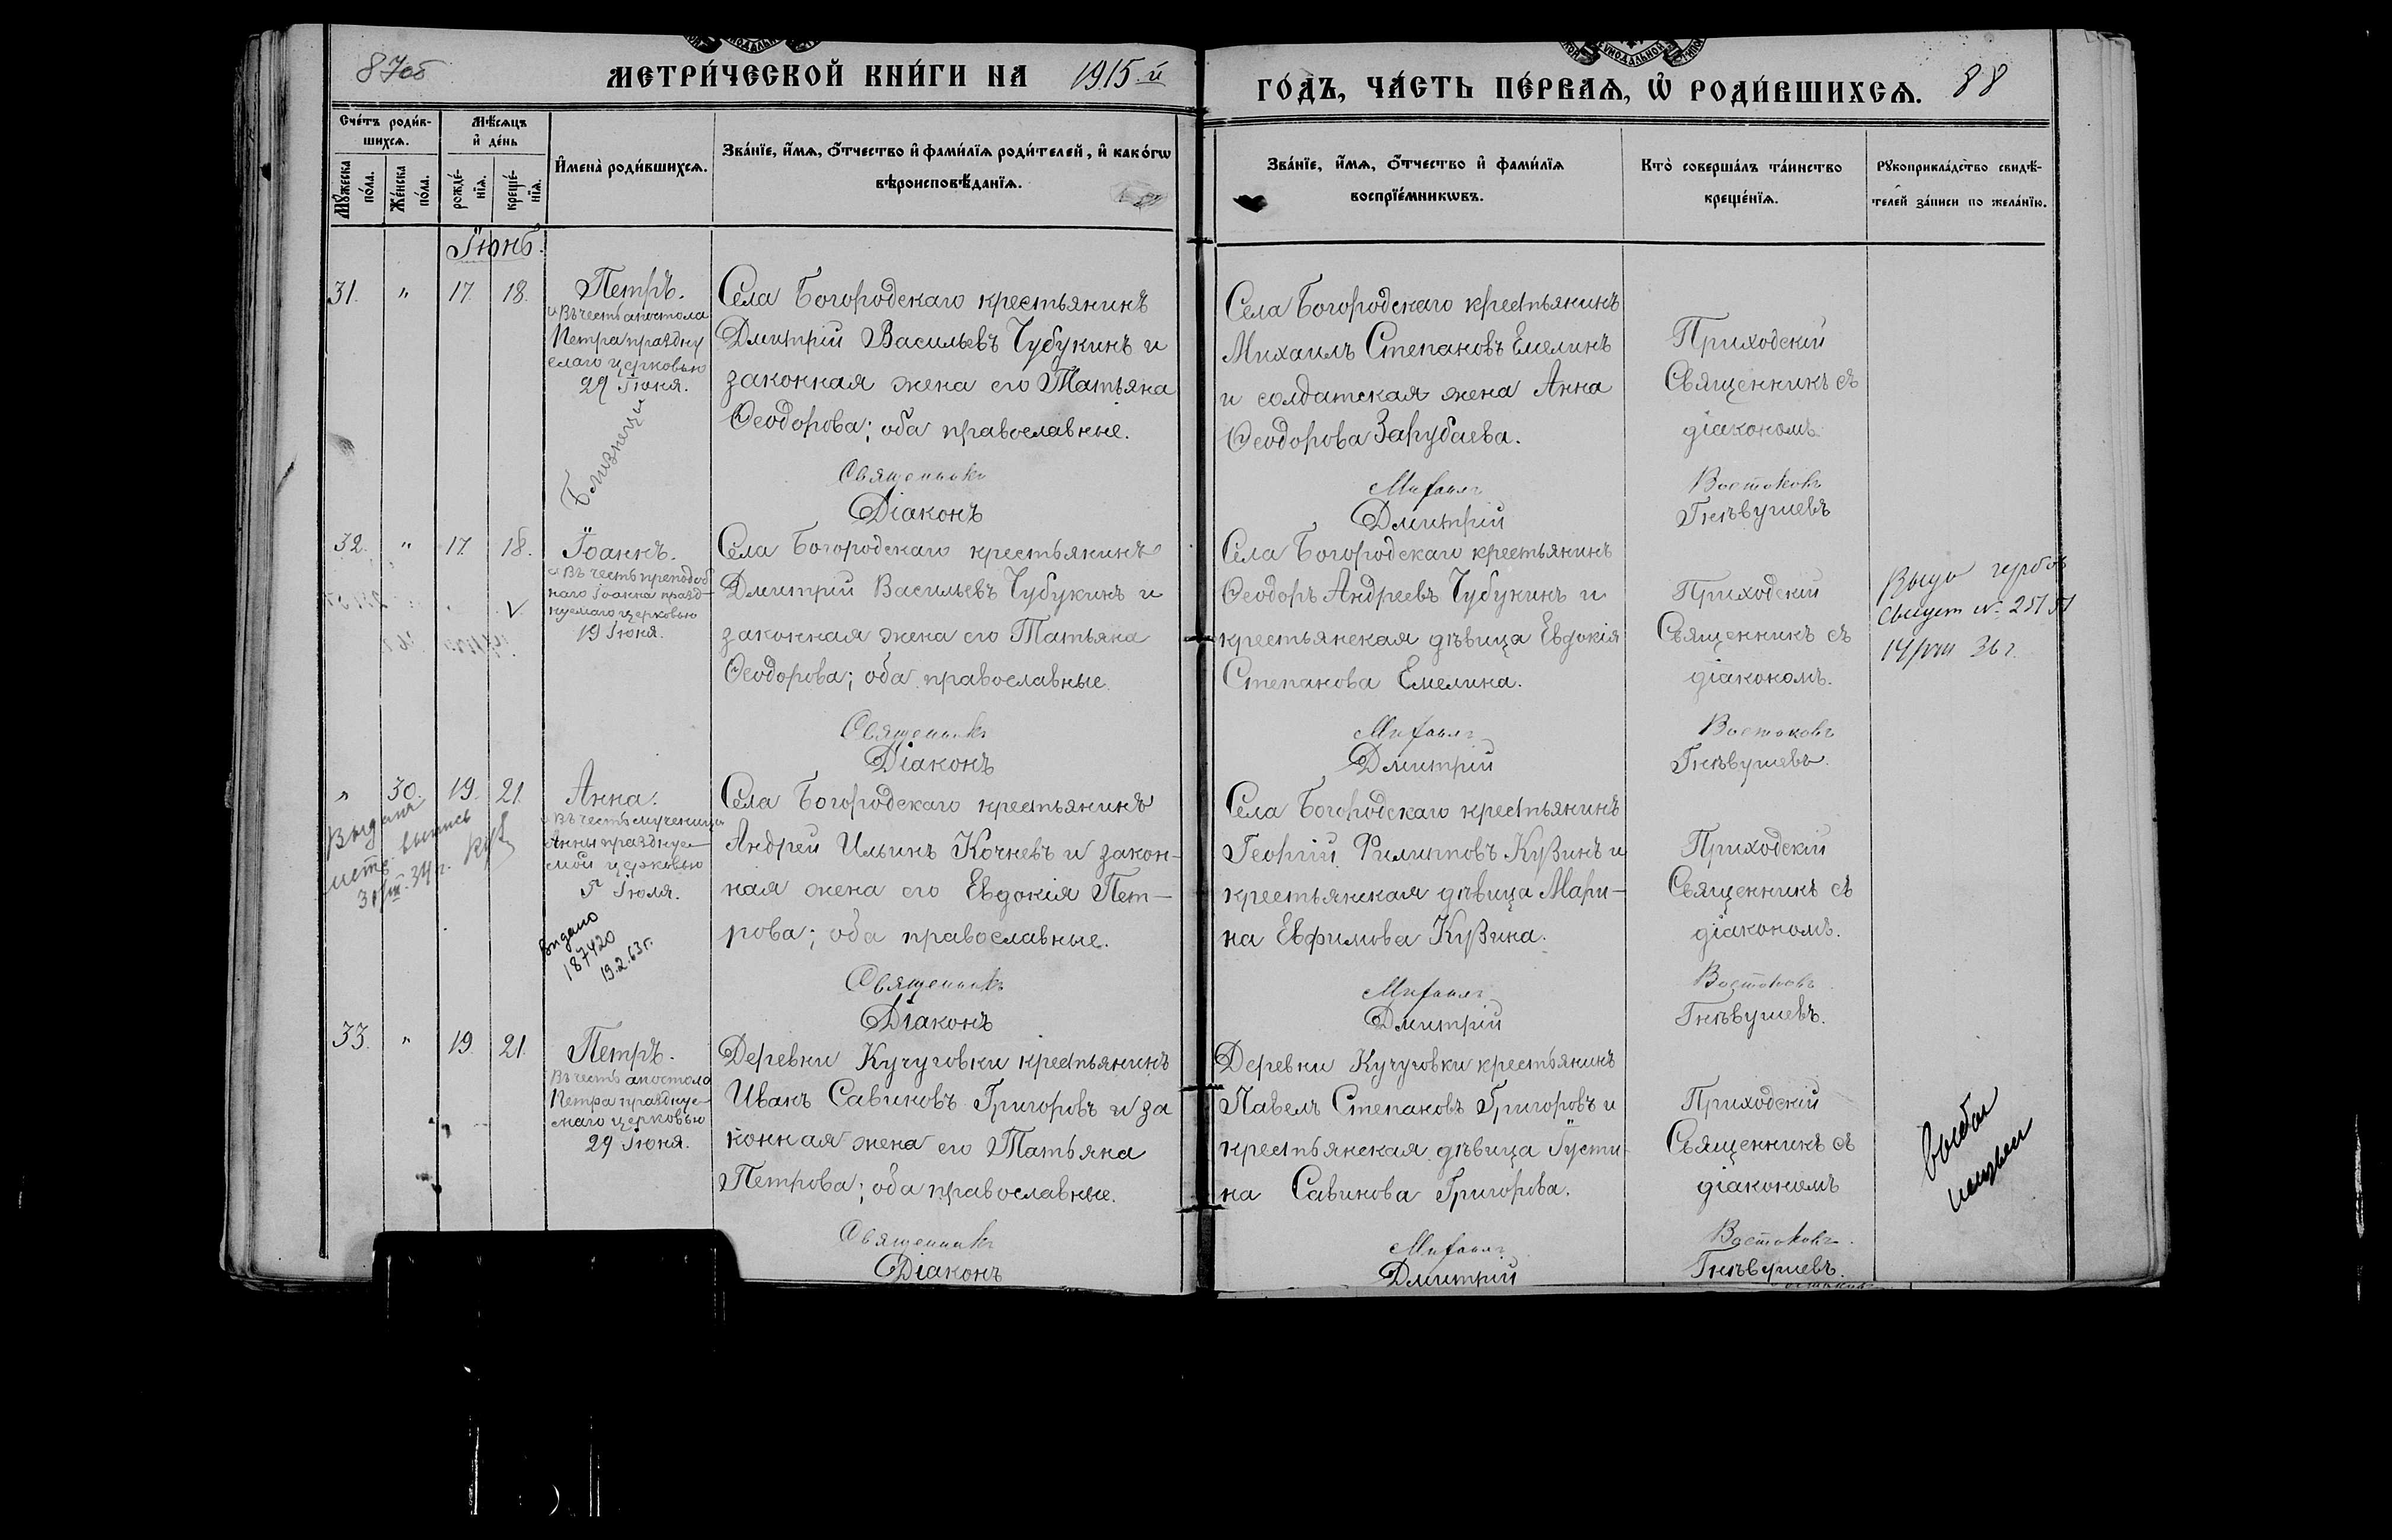 87об
МЕТРИ́ЧЕСКОЙ КНИ́ГИ НА 1915-й
ГО́ДЪ, ЧА́СТЬ ПЕ́РВАѦ, Ѡ҆ РОДИ́ВШИХСѦ. 88
Сче́тъ роди́в-
шихсѧ.
Мꙋ́жеска
по́ла.
Же́нска
по́ла.
Мѣ́сѧцъ
и҆ де́нь
рожде́-
нїѧ.
креще́-
нїѧ.
И҆мена̀ роди́вшихсѧ.
Зва́нїе, и҆́мѧ, ѻ҆́тчество и҆ фами́лїѧ роди́телей, и҆ како́гѡ
вѣроисповѣ́данїѧ.
Зва́нїе, и҆́мѧ, ѻ҆́тчество и҆ фами́лїѧ
воспрїе́мникѡвъ.
Кто̀ соверша́лъ та́инство
креще́нїѧ.
Рꙋкоприкла́дство свидѣ́-
телей за́писи по жела́нїю.
Іюнь.
31. " 17. 18.
Петръ.
Въ честь апостола
Петра праздну
емаго церковью
29 Іюня.
Близнецы
Села Богородскаго крестьянинъ
Дмитрій Васильевъ Чубукинъ и
законная жена его Татьяна
Ѳеодорова; оба православные.
Священникъ
Діаконъ
Села Богородскаго крестьянинъ
Михаилъ Степановъ Емелинъ
и солдатская жена Анна
Ѳеодорова Зарубаева.
Михаилъ
Дмитрій
Приходскій
Священникъ съ
діакономъ.
Востоковъ
Гнѣвушевъ
32. " 17. 18.
V
Іоаннъ.
Въ честь преподоб
наго Іоанна празд-
нуемаго церковью
19 Іюня.
Села Богородскаго крестьянинъ
Дмитрій Васильевъ Чубукинъ и
законная жена его Татьяна
Ѳеодорова; оба православные.
Священникъ
Діаконъ
Села Богородскаго крестьянинъ
Ѳеодоръ Андреевъ Чубукинъ и
крестьянская дѣвица Евдокія
Степанова Емелина.
Михаилъ
Дмитрій
Приходскій
Священникъ съ
діакономъ.
Востоковъ
Гнѣвушевъ.
№ 25151
14/VIII 36 г.
" 30. 19. 21.
Выдана
выпись
31/III 34 г.
Анна.
Въ честь мученицы
Анны празднуе-
мой церковью
5 Іюля.
Выдано
187420
19.2.63г.
Села Богородскаго крестьянинъ
Андрей Ильинъ Кочневъ и закон-
ная жена его Евдокія Пет-
рова; оба православные.
Священникъ
Діаконъ
Села Богородскаго крестьянинъ
Георгій Филипповъ Кузинъ и
крестьянская дѣвица Мари-
на Евфимова Кузина.
Михаилъ
Дмитрій
Приходскій
Священникъ съ
діакономъ.
Востоковъ
Гнѣвушевъ.
33. " 19. 21.
Петръ.
Въ честь апостола
Петра празднуе-
маго церковью
29 Іюня.
Деревни Кучуговки крестьянинъ
Иванъ Савиновъ Григоровъ и за
конная жена его Татьяна
Петрова; оба православные.
Священникъ
Діаконъ
Деревни Кучуговки крестьянинъ
Павелъ Степановъ Григоровъ и
крестьянская дѣвица Іусти-
на Савинова Григорова.
Михаилъ
Дмитрій
Приходскій
Священникъ съ
діакономъ
Востоковъ.
Гнѣвушевъ.